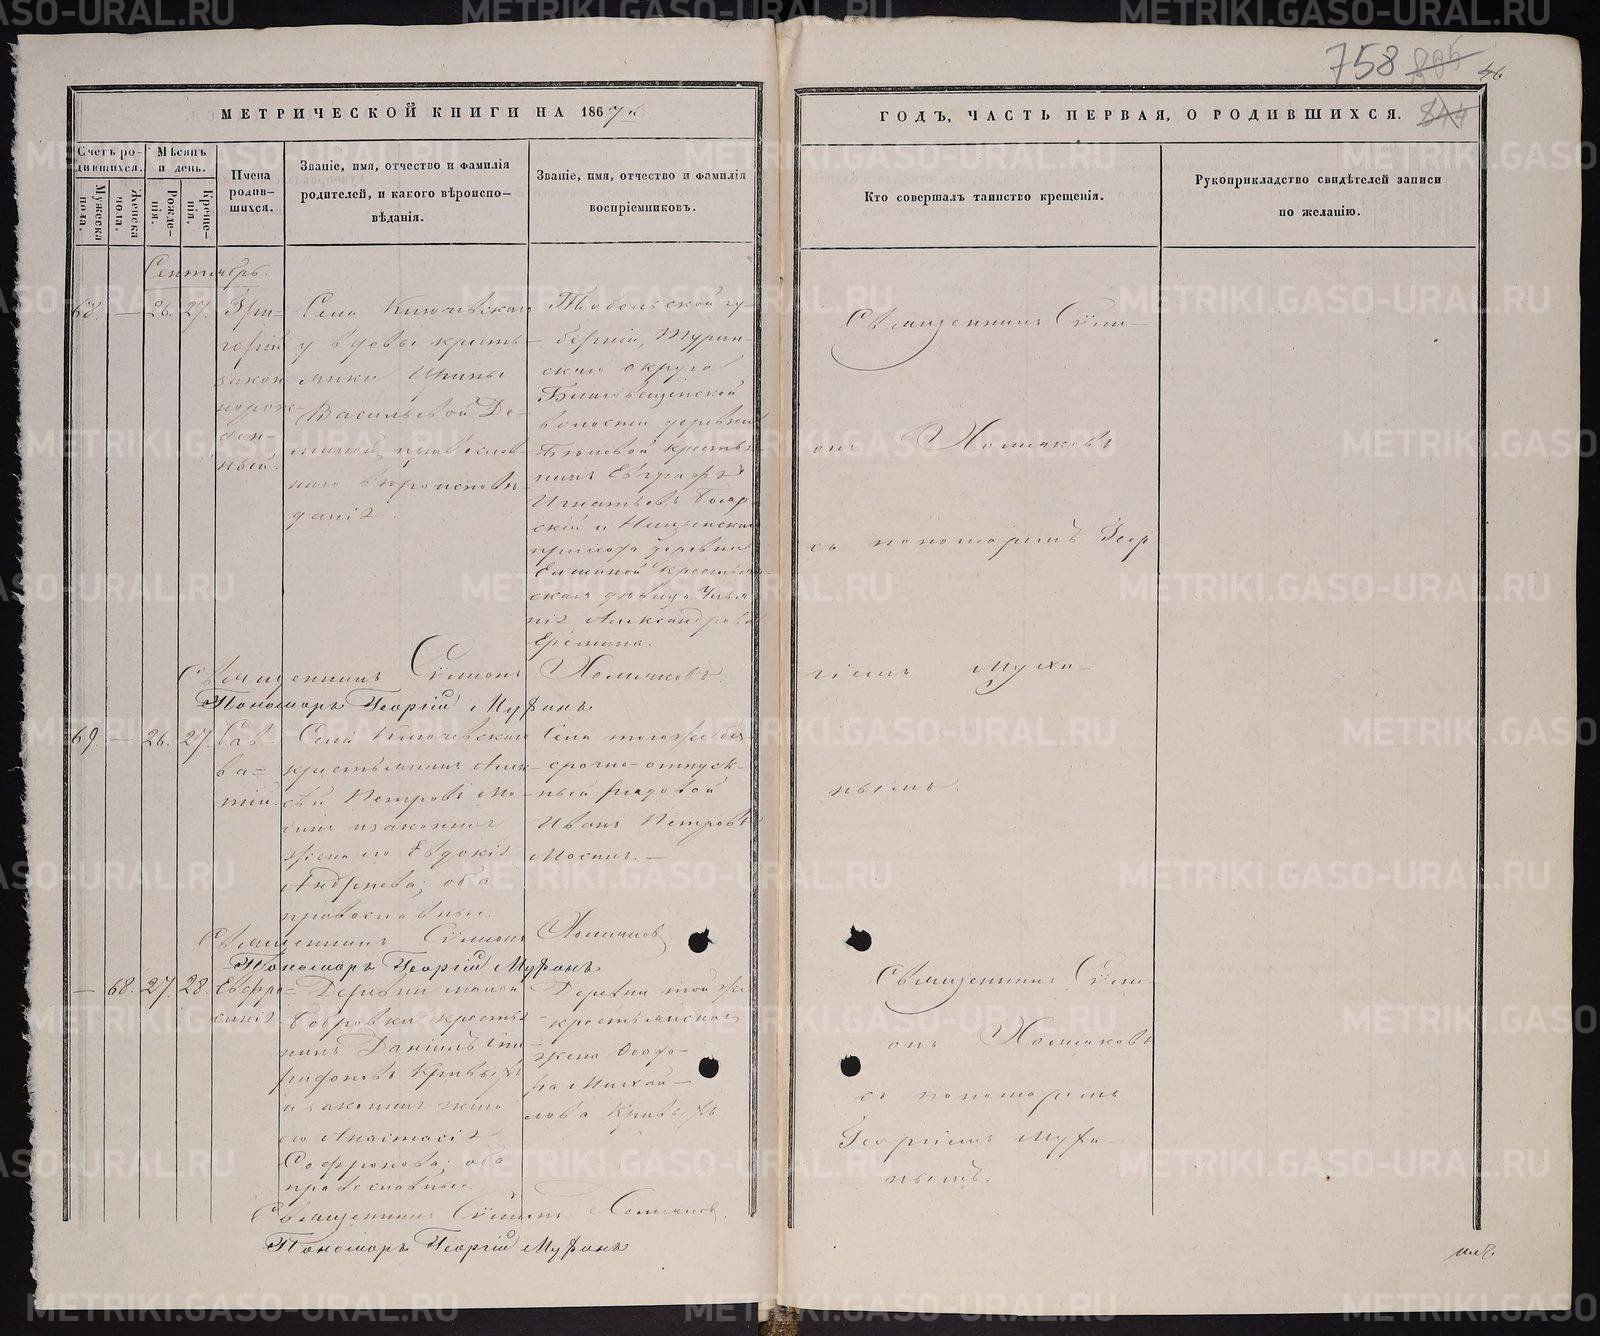 758 806 46
844
МЕТРИЧЕСКОЙ КНИГИ НА 1867й
ГОДЪ, ЧАСТЬ ПЕРВАЯ, О РОДИВШИХСЯ.
Счетъ ро-
дившихся.
Мужеска
пола.
Женска
пола.
Мѣсяцъ
и день.
Рожде-
нія.
Креще-
нія.
Имена
родив-
шихся.
Званіе, имя, отчество и фамилія
родителей, и какого вѣроиспо-
вѣданія.
Званіе, имя, отчество и фамилія
воспріемниковъ.
Кто совершалъ таинство крещенія.
Рукоприкладство свидѣтелей записи
по желанію.
Сентябрь.
68. — 26. 27.
Гри-
горій
закон
норож-
ден-
ный.
Села Ключевскаго
у вдовы кресть-
янки Ирины
Васильевой Де-
православ-
наго вѣроисповѣ-
данія.
Тобольской гу-
берніи, Турин-
скаго округа
Благовѣщенской
волости деревни
крестья-
нинъ Евграфъ
Игнатьевъ Бояр-
скій и Ницынскаго
прихода деревни
Еклиной крестьян-
ская дѣвица
Александрова
Еремина.
Священникъ Сѵмеонъ Холмаковъ.
Пономарь Георгій Мухинъ
Священникъ Сѵме-
онъ Холмаковъ
съ пономаремъ Геор-
гіемъ Мухи-
нымъ.
69 — 26. 27.
Сав-
ва-
тій.
Села Ключевскаго
крестьянинъ Алек-
сѣй Петровъ Мо-
синъ и законная
жена его Евдокія
Андреева, оба
православные.
Села тогоже без
срочно-отпуск-
ный рядовой
Иванъ Петровъ
Мосинъ. —
Священникъ Сѵмеонъ Холмаковъ
Пономарь Георгій Мухинъ
— 68. 27. 28.
Евфро-
синія
Деревни малой
Бобровки кресть-
нинъ Даніилъ Епи-
фановъ Кривыхъ
и законная жена
его Анастасія
Софронова; оба
православные.
Деревни той же
крестьянская
жена Феодо-
ра Михай-
лова Кривыхъ
Священникъ Сѵмеонъ Холмаковъ.
Пономарь Георгій Мухинъ
Священникъ Сѵме-
онъ Холмаковъ
съ пономаремъ
Георгіемъ Мухи-
нымъ.
METRIKI.GASO-URAL.RU